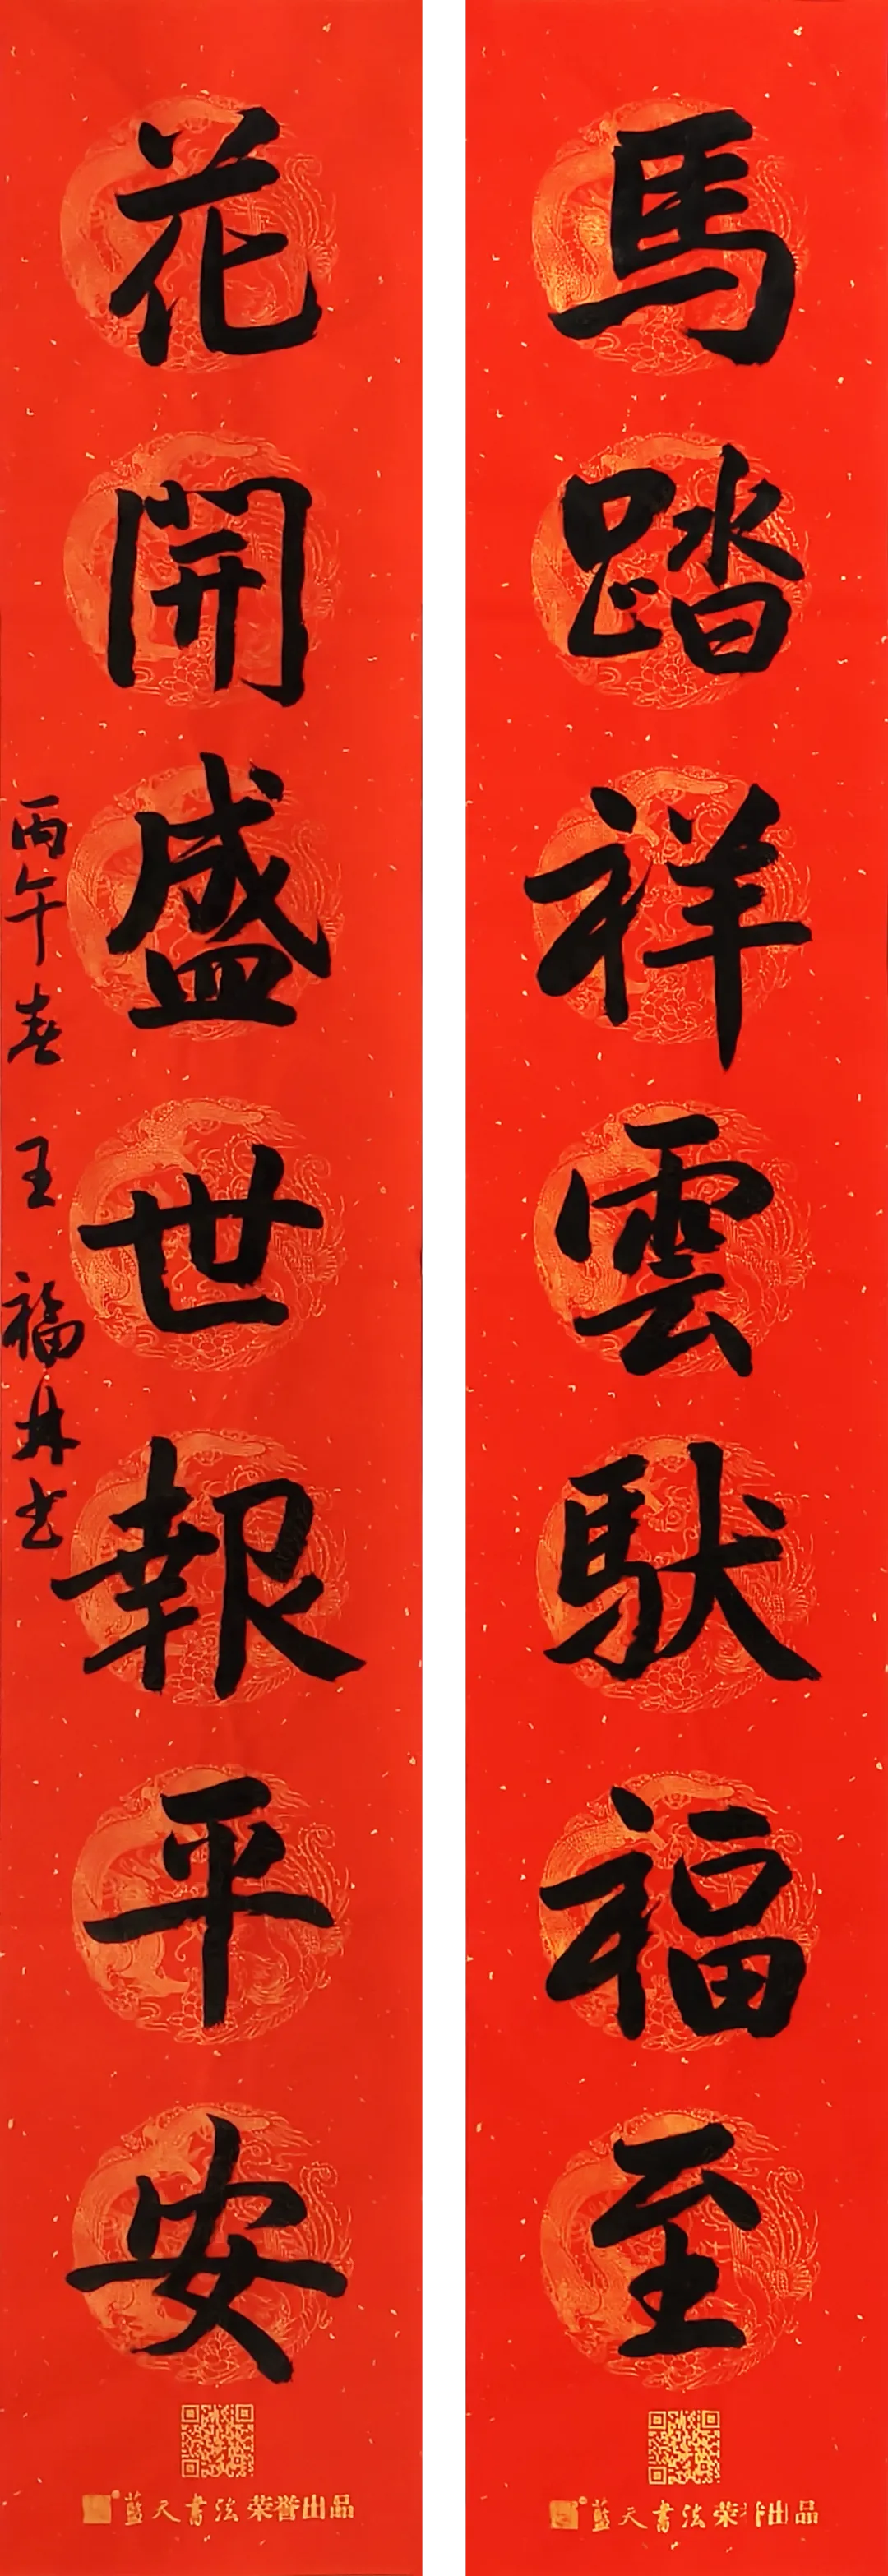 馬踏祥雲馱福至
花開盛世報平安
丙午春 王福林书
藍天書法 荣誉出品
藍天書法 荣出品